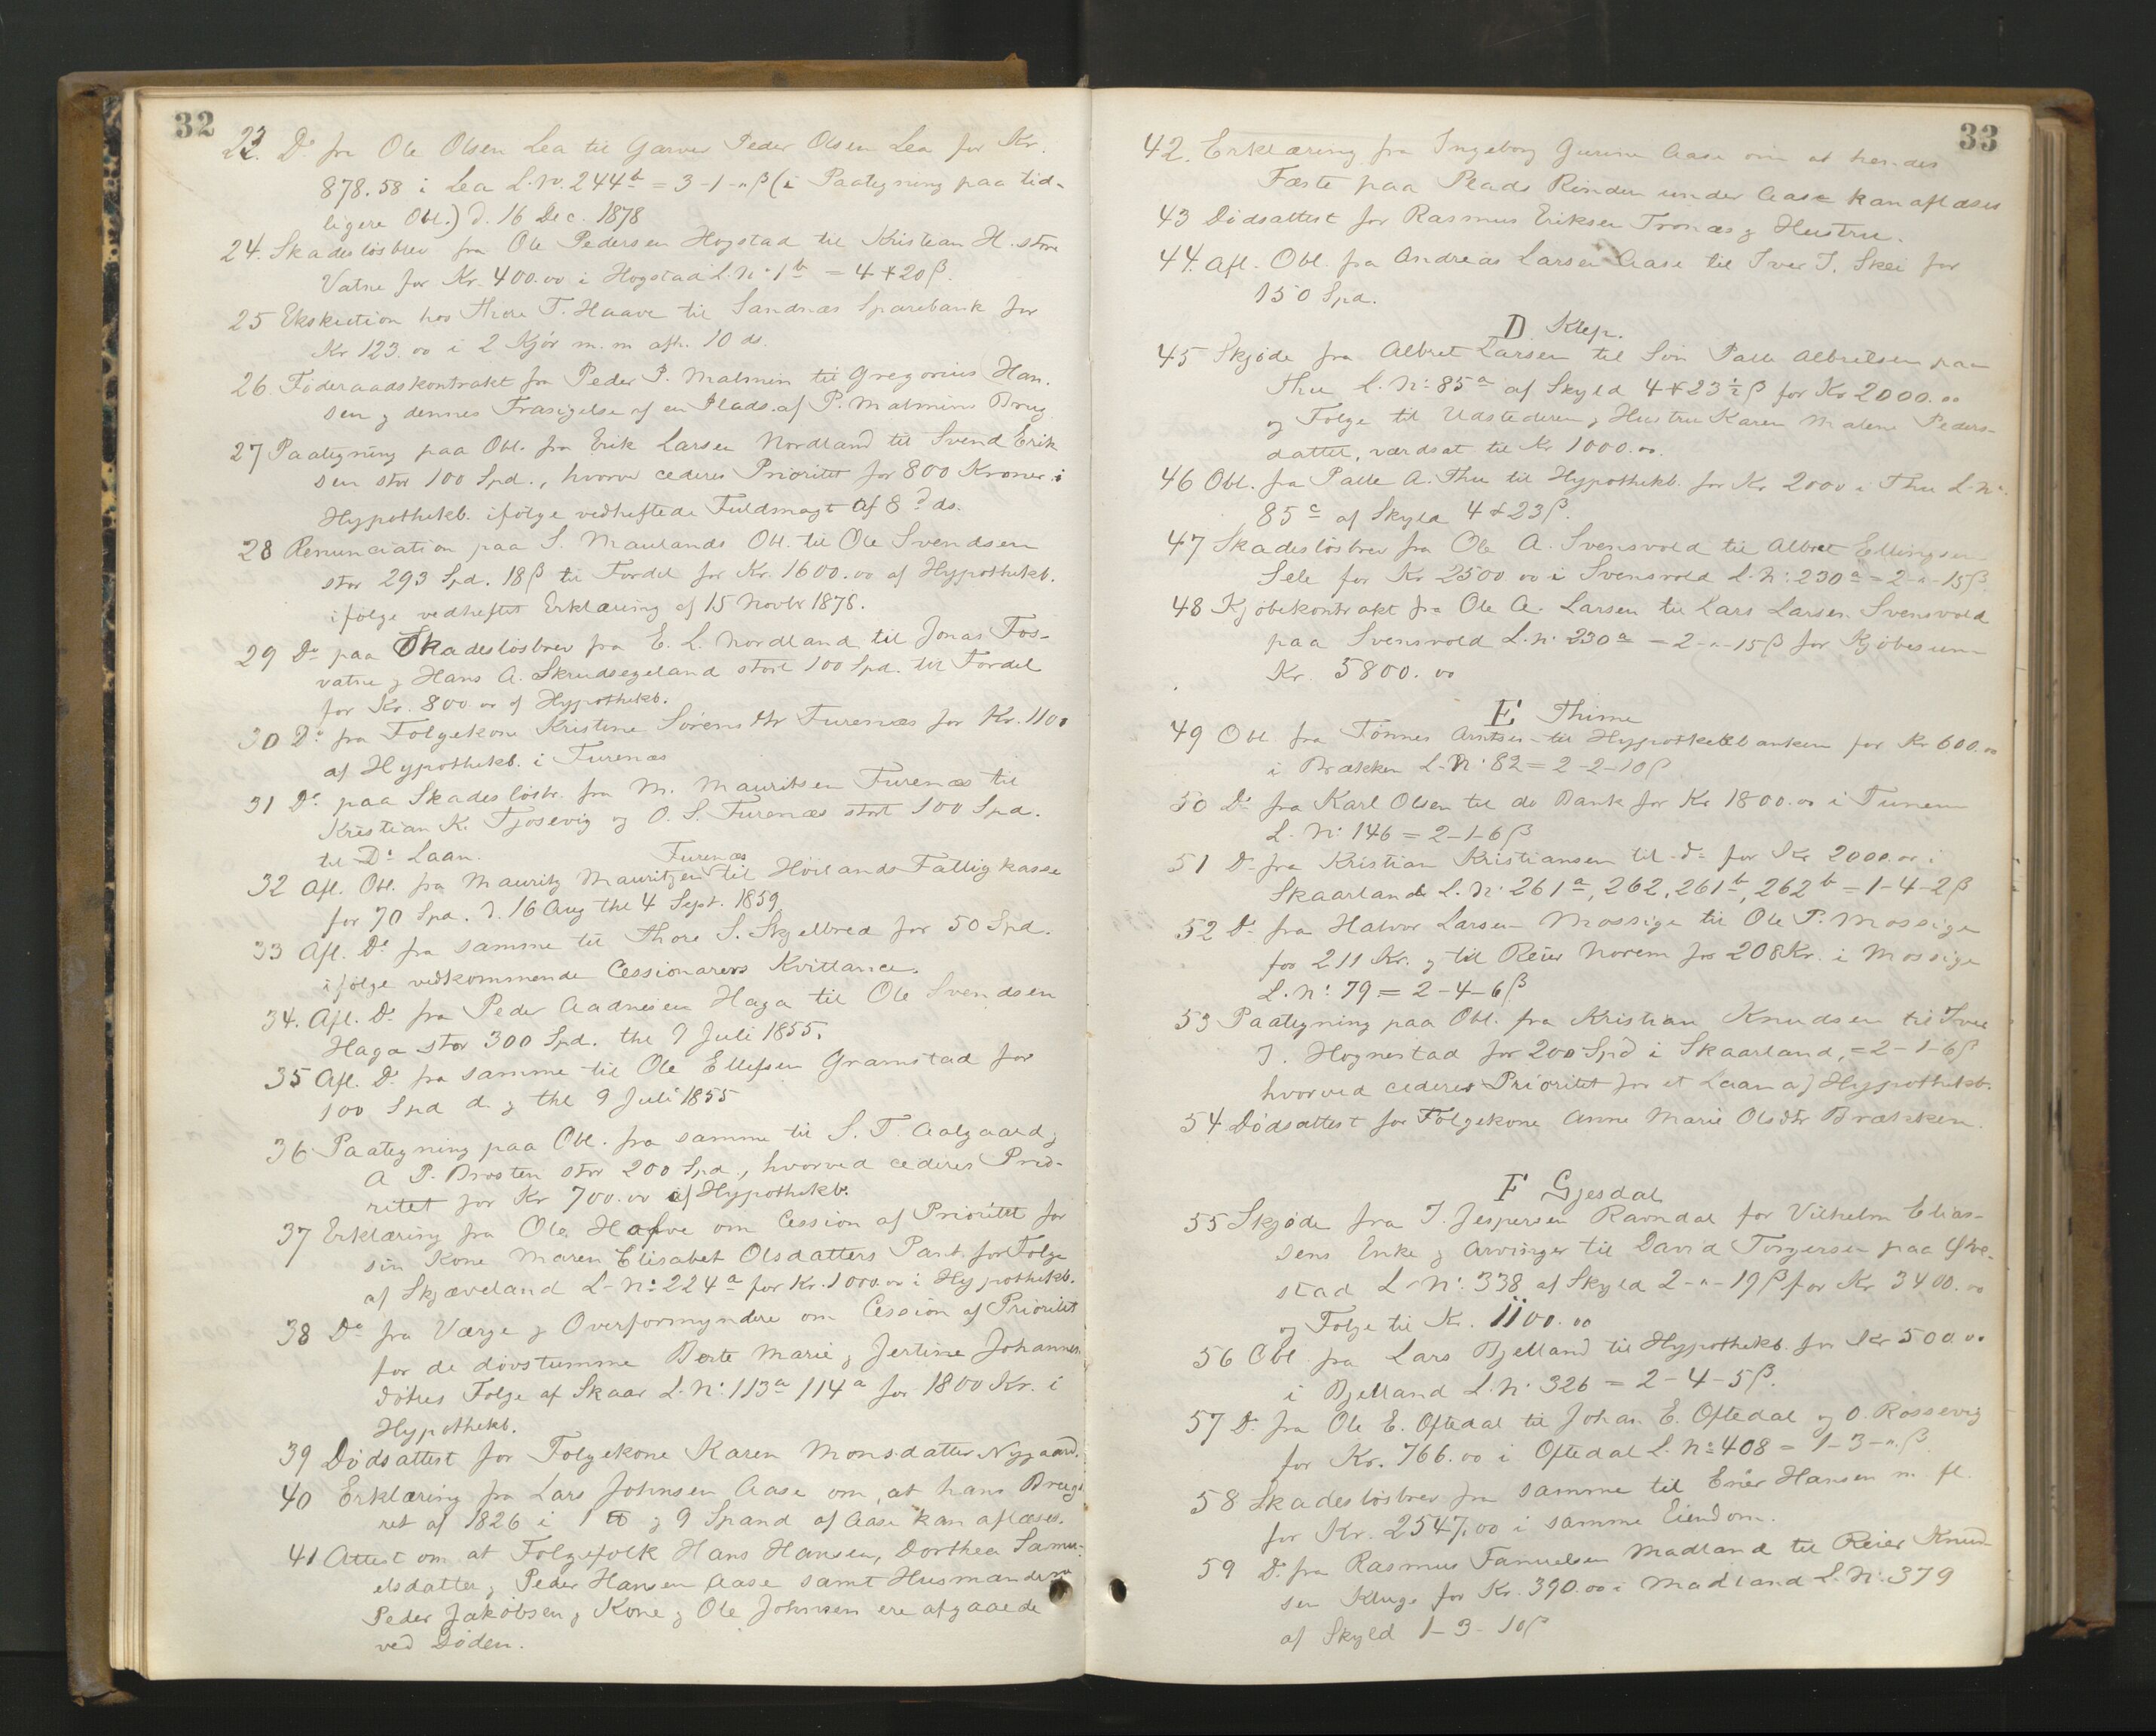 32
23. Do fra Ole Olsen Lea til Garver Peder Olsen Lea for Kr.
878.58 i Lea L.No. 244b = 3-1-"β (i Paategning paa tid-
ligere Obl.) d. 16 Dec. 1878
24. Skadesløsbrev fra Ole Pedersen Hogstad til Kristian H. store
Vatne for Kr. 400.00 i Hogstad L.No 1b = 4 + 20 β.
25 Ekskution hos Thore T. Haave til Sandnæs Sparebank for
Kr 123.00 i 2 Kjør m.m afh. 10 ds.
26. Føderaadskontrakt fra Peder P. Malmin til Gregorius Han.
sen og dennes Frasigelse af en Plads af P. Malmins Brug.
27 Paategning paa Obl. fra Erik Larsen Nordland til Svend Erik
sen stor 100 Spd., hvorved cederes Prioritet for 800 Kroner i
Hypothekb. ifølge vedheftede Fuldmagt af 8d ds.
28 Renunciation paa S. Maulands Obl. til Ole Svendsen
stor 293 Spd. 18 β til Fordel for Kr. 1600.00 af Hypothekb.
ifølge vedheftet Erklæring af 15 Novbr 1878.
29 Do paa Skadesløsbrev fra E. L. Nordland til Jonas Fos-
vatne og Hans A. Skrudsegeland stort 100 Spd. til Fordel
for Kr. 800.00 af Hypothekb.
30 Do fra Folgekone Kristine Sørensdtr Furenæs for Kr. 1100
af Hypothekb. i Furenæs
31 Do paa Skadesløsbr. fra M. Mauritsen Furenæs til
Kristian K. Tjosevig og O. S. Furenæs stort 100 Spd.
til Do Laan.
Furenæs
32 Afl. Obl. fra Mauritz Mauritzen til Høilands Fattigkasse
for 70 Spd. d. 16 Aug thl 4 Sept. 1859
33 Afl. Do fra samme til Thore S. Skjelbred for 50 Spd.
ifølge vedkommende Cessionarers Kvittance.
34. Afl. Do fra Peder Aadnesen Haga til Ole Svendsen
Haga stor 300 Spd. thl 9 Juli 1855.
35 Afl. Do fra samme til Ole Ellefsen Gramstad for
100 Spd d. og thl 9 Juli 1855
36 Paategning paa Obl. fra samme til S. T. Aalgaard og
A P. Brosten stor 200 Spd., hvorved cederes Prio-
ritet for Kr 700.00 af Hypothekb.
37 Erklæring fra Ole Hafve om Cession af Prioritet for
sin Kone Maren Elisabet Olsdatters Pant for Folge
af Skjæveland L-No 224a for Kr. 1000.00 i Hypothekb.
38 Do fra Værge og Overformyndere om Cession af Prioritet
for de døvstumme Berte Marie og Jertine Johannes
døtres Folge af Skaar L.No: 113a 114a for 1800 Kr. i
Hypothekb.
39 Dødsattest for Folgekone Karen Monsdatter Nygaard.
40 Erklæring fra Lars Johnsen Aase om, at hans Brugs
ret af 1826 i 1 og 9 Spand af Aase kan aflæses.
41 Attest om at Folgefolk Hans Hansen, Dorthea Samu-
elsdatter og Peder Hansen Aase samt Husmændene
Peder Jakobsen og Kone og Ole Johnsen ere afgaaede
ved Døden.
33
42. Erklæring fra Ingeborg Gurine Aase om at hendes
Fæste paa Plads Rinden under Aase kan aflæses
43 Dødsattest for Rasmus Eriksen Tronæs og Hustru.
44. Afl. Obl. fra Andreas Larsen Aase til Iver T. Skei for
150 Spd.
D. Klep.
45 Skjøde fra Albret Larsen til Søn Palle Albretsen paa
Thu L.No: 85a af Skyld 4 + 23½ β for Kr 2000.00
og Folge til Udstederen og Hustru Karen Malene Peders-
datter, værdsat til Kr 1000.00.
46 Obl. fra Palle A. Thu til Hypothekb. for Kr 2000 i Thu L.No.
85c af Skyld 4 + 23 β.
47 Skadesløsbrev fra Ole A. Svensvold til Albret Ellingsen
Sele for Kr 2500.00 i Svensvold L.No: 230a = 2-"-15 β
48 Kjøbekontrakt fra Ole A. Larsen til Lars Larsen Svensvold
paa Svensvold L.No: 230a = 2-"-15 β for Kjøbesum
Kr. 5800.00
E Thime
49 Obl. fra Tønnes Arntsen til Hypothekbanken for Kr 600.00
i Brækken L.No: 82 = 2-2-10 β
50 Do fra Karl Olsen til do Bank for Kr 1800.00 i Tunem
L.No: 146 = 2-1-6 β
51 Do fra Kristian Kristiansen til do for Kr 2000.00 i
Skaarland L.No: 261a, 262, 261b, 262b = 1-4-2 β
52 Do fra Halvor Larsen Mossige til Ole P. Mossige
for 211 Kr. og til Reier Norem for 208 Kr. i Mossige
L.No: 79 = 2-4-6 β
53 Paategning paa Obl. fra Kristian Knudsen til Iver
T. Hognestad for 200 Spd i Skaarland, = 2-1-6 β
hvorved cederes Prioritet for et Laan af Hypothekb.
54 Dødsattest for Folgekone Anne Marie Olsdtr Brækken.
F Gjesdal
55 Skjøde fra T. Jespersen Ravndal for Vilhelm Elias-
sens Enke og Arvinger til David Torgersen paa
stad L-No: 338 af Skyld 2-"-19 β for Kr 3400.00
og Folge til Kr. 1100.00
56 Obl. fra Lars Bjelland til Hypothekb. for Kr 500.00
i Bjelland L.No: 326 = 2-4-5 β.
57 Do fra Ole E. Oftedal til Johan E. Oftedal og O. Rossevig
for Kr. 766.00 i Oftedal L.No: 408 = 1-3-" β.
58 Skadesløsbrev fra samme til Enér Hansen m. fl.
for Kr. 2547.00 i samme Eiendom.
59 Do fra Rasmus Fanuelsen Madland til Reier Knud-
sen Kluge for Kr. 390.00 i Madland L.No: 379
af Skyld 1-3-10 β